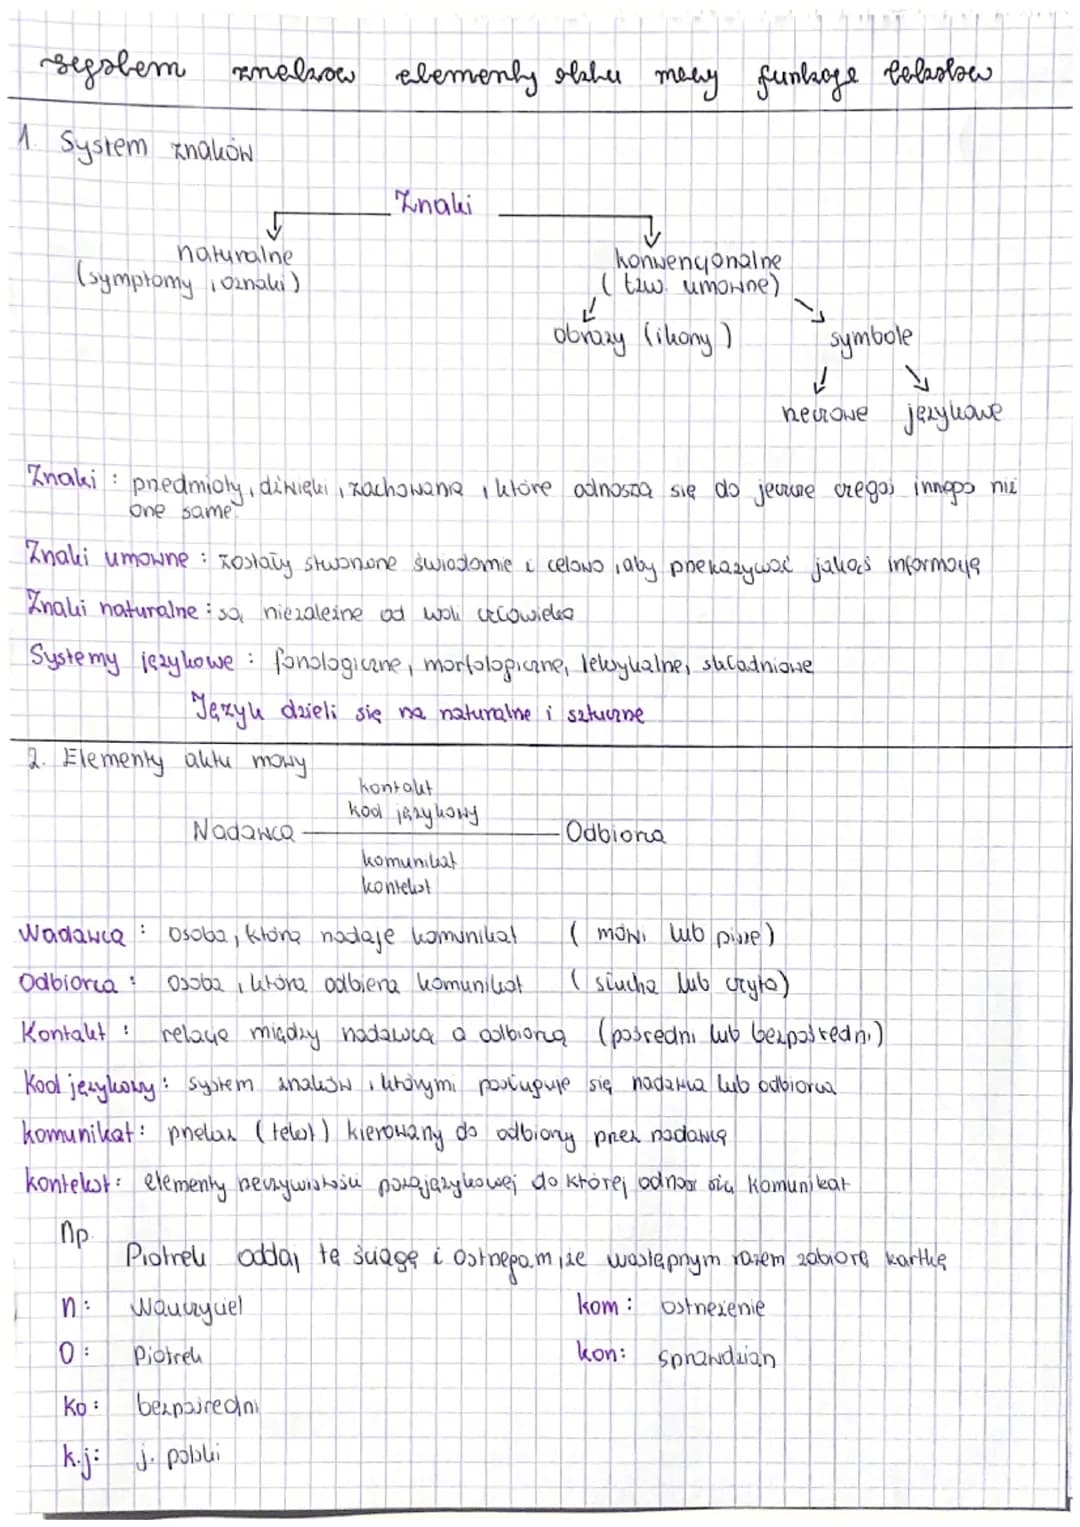 system znaków elementy aktu mowy funkcje tekstów
1. System znaków
Znaki
naturalne
(symptomy, oznaki)
konwencjonalne
(tzw. umowne)
obrazy (ikony)
symbole
rzeczowe językowe
Znaki: przedmioty, dźwięki, zachowania, które odnoszą się do jeszcze czegoś innego niż
one same.
Znaki umowne: zostały stworzone świadomie i celowo, aby przekazywać jakąś informację
Znaki naturalne: są niezależne od woli człowieka
Systemy językowe: fonologiczne, morfologiczne, leksykalne, składniowe
Język dzieli się na naturalne i sztuczne
2. Elementy aktu mowy
kontakt
kod językowy
Nadawca Odbiorca
komunikat
kontekst
Nadawca: osoba, która nadaje komunikat (mówi lub pisze)
Odbiorca: osoba, która odbiera komunikat (słucha lub czyta)
Kontakt: relacje między nadawcą a odbiorcą (pośredni lub bezpośredni)
Kod językowy: system znaków, którymi posługuje się nadawca lub odbiorca
komunikat: przekaz (tekst) kierowany do odbiorcy przez nadawcę
kontekst: elementy rzeczywistości pozajęzykowej do której odnosi się komunikat
Np.
Piotrek oddaj tę ściągę i ostrzegam, że następnym razem zabiorę kartkę
n: Nauczyciel kom: ostrzeżenie
O: Piotrek kon: sprawdzian
Ko: bezpośredni
k.j: j. polski